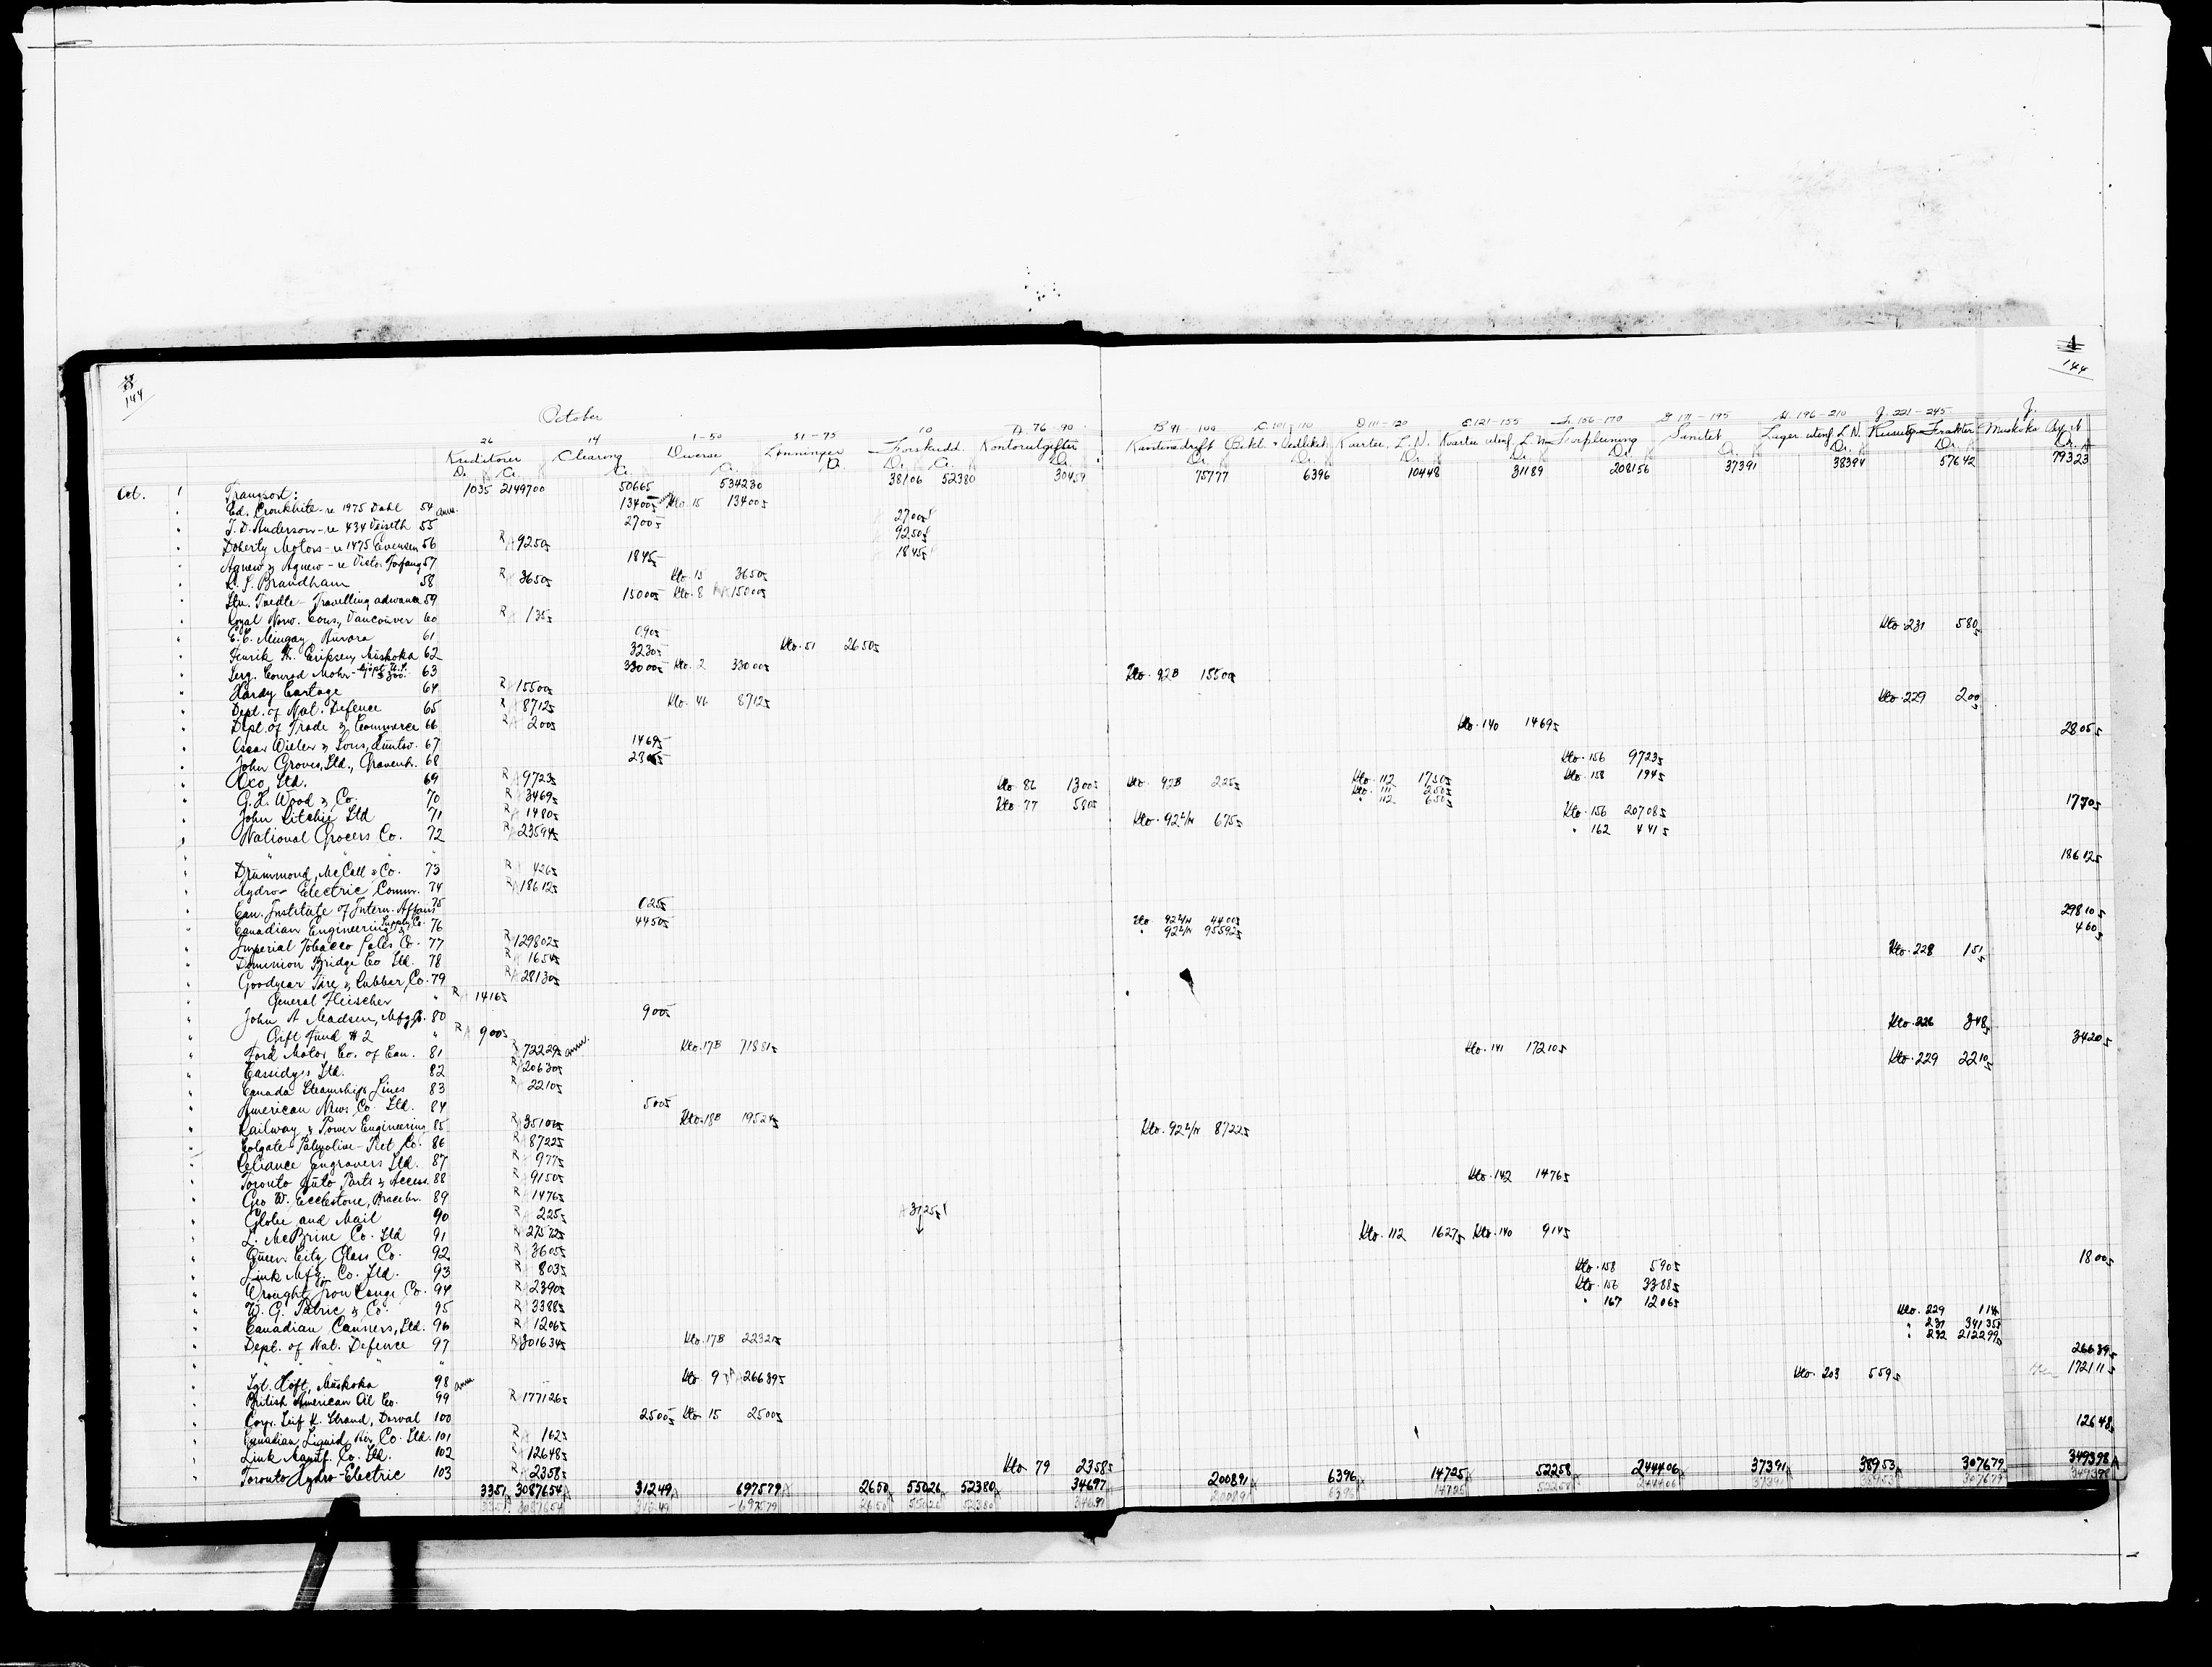 144
144
October
26 14 1-50 51-75 10 A. 76-90 B 91-100 C. 101-110 D 111-120 E. 121-155 F. 156-170 G 171-195 H. 196-210 J. 221-245 J.
Kreditorer Clearing Diverse Lønninger Forskudd Kontorutgifter Kantinedrift Bekl. Vedlikeh. Kvarter L.N. Kvarter utenf. L.N. Forpleining Sanitet Lager utenf. L.N. Frakter Muskoka
Dr. Cr. Cr. Cr. Dr. Dr. Cr. Dr. Dr. Dr. Dr. Dr. Dr. Dr. Dr. Dr. Dr.
Oct. 1 Transport: 1035 2149700 50665 534230 38106 52380 30459 75777 6396 10448 31189 208156 37391 38394 57642 79323
Ed. Cronkhite - re 1975 Dahl 54 13400 Kto. 15 13400
J. D. Anderson - re 434 55 2700 2700
Doherty Motors - re 1475 Evensen 56 R 9250 9250
Agnew & Agnew - re 57 1845 1845
Brandham 58 R 3650 Kto. 15 3650
Travelling advance 59 15000 Kto. 8 15000
Royal Norw. Cons, Vancouver 60 R 135
E. C. Mingay, Aurora 61 090 Kto. 231 580
Henrik Eriksen, Muskoka 62 3230 Kto. 51 2650
Serg. Conrad Mohr 63 33000 Kto. 2 33000
Hardy Cartage 64 R 15500 Kto. 92B 15500
Dept. of Nat. Defence 65 R 8712 Kto. 46 8712
Dept. of Trade & Commerce 66 R 200 Kto. 229 200
Oscar Wieler & Sons, 67 1469 Kto. 140 1469
John Groves, Ltd., Gravenh. 68 2805
Oxo, Ltd. 69 R 9723 Kto. 156 9723
G. H. Wood & Co. 70 R 3469 Kto. 86 1300 Kto. 92B 225 Kto. 112 1750 Kto. 158 194
John Ritchie Ltd 71 R 1480 Kto. 77 580 " 111 250
" 112 650
National Grocers Co. 72 R 23594 Kto. 92L/N 675 Kto. 156 20708 1770
" " " " 162 441
Drummond, McCall & Co. 73 R 426
Hydro-Electric Comm. 74 R 18612 18612
Can. Institute of Intern. Affairs 75 025
Canadian Engineering Supply Co. 76 4450
Imperial Tobacco Sales Co. 77 R 129802 Kto. 92L/N 4400 29810
" 92L/N 95592
Dominion Bridge Co Ltd. 78 R 1654 460
Goodyear Tire & Rubber Co. 79 R 28130 Kto. 228 151
General Fleischer " R 1416
John A Madsen, Mfg. 80 900
Gift Fund #2 " R 900
Ford Motor Co. of Can. 81 R 72229 Kto. 17B 71881 Kto. 226 348
Cassidy's Ltd. 82 R 20630 Kto. 141 17210 3420
Canada Steamships Lines 83 R 2210 Kto. 229 2210
American News Co. Ltd. 84 500
Railway & Power Engineering 85 R 35101 Kto. 18B 19524
Colgate-Palmolive-Peet Co. 86 R 87225 Kto. 92L/N 8722
Reliance Engravers Ltd. 87 R 977
Toronto Auto Parts & Access. 88 R 9150
Geo W. Ecclestone, Bracebr. 89 R 1476 Kto. 142 1476
Globe and Mail 90 R 225
L. McBrine Co. Ltd 91 R 27572 3125
Queen City Glass Co. 92 R 3605 Kto. 112 1627 Kto. 140 914
Link Mfg. Co. Ltd. 93 R 803
Wrought Iron Range Co. 94 R 2390 Kto. 158 590 1800
W. G. Patric & Co. 95 R 3388 Kto. 156 3388
Canadian Canners, Ltd. 96 R 1206 " 167 1206
Dept. of Nat. Defence 97 R 301634 Kto. 17B 22321 Kto. 229 114
" 231 34135
" " " " " 232 212299
Sgt. Hoft, Muskoka 98 Kto. 9 26689 26689
British American Oil Co. 99 R 177126 Kto. 203 559 172111
Corp. Leif K. Strand, Dorval 100 2500 Kto 15 2500
Canadian Liquid Air Co. Ltd. 101 R 162
Link Manuf. Co. Ltd. 102 R 12648 12648
Toronto Hydro-Electric 103 R 2358 Kto 79 2358
3351 3087654 31249 697579 2650 55026 52380 34697 200891 6396 14725 52258 244406 37391 38953 307679 349398
3351 3087654 31249 697579 2650 55026 52380 34697 200891 6396 14725 52258 244406 37391 38953 307679 349398